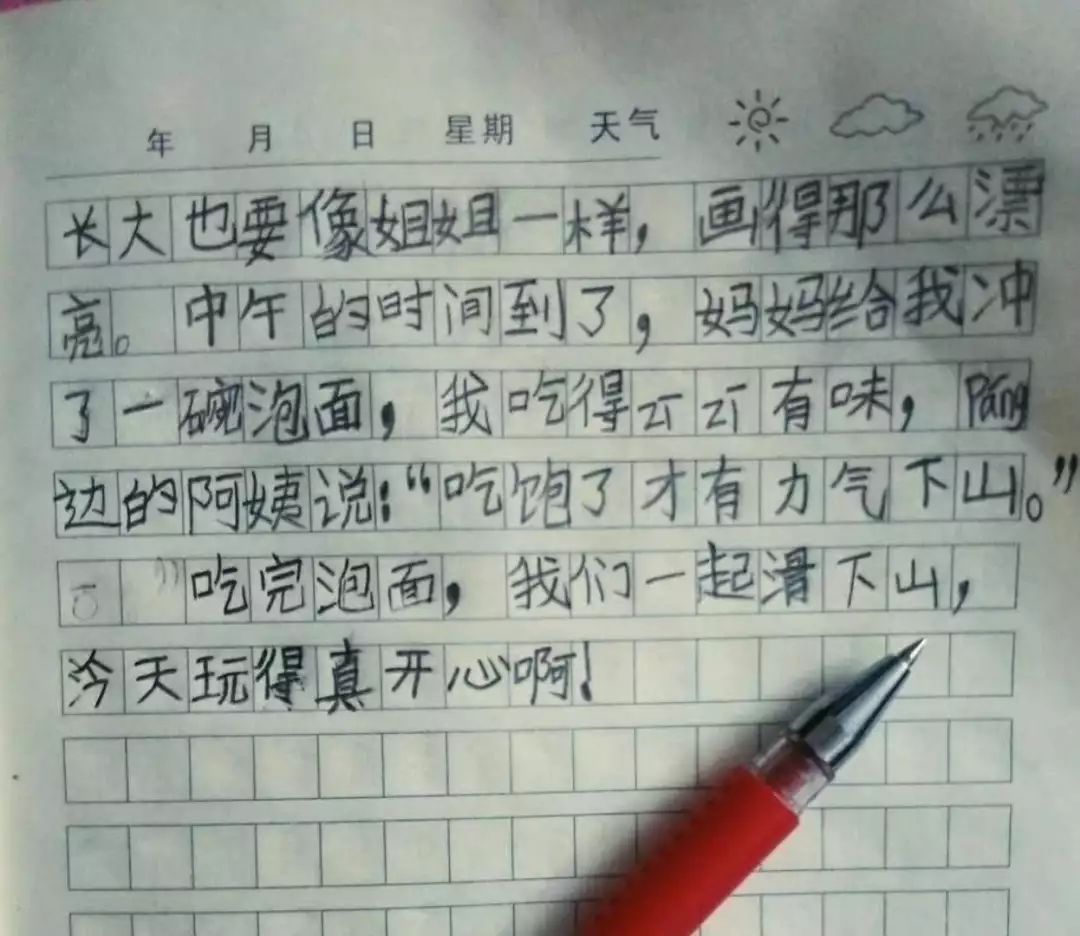 年 月 日 星期 天气
长大也要像姐姐一样，画得那么漂
亮。中午的时间到了，妈妈给我冲
了一碗泡面，我吃得云云有味，Páng
边的阿姨说：“吃饱了才有力气下山。”
吃完泡面，我们一起滑下山，
今天玩得真开心啊！